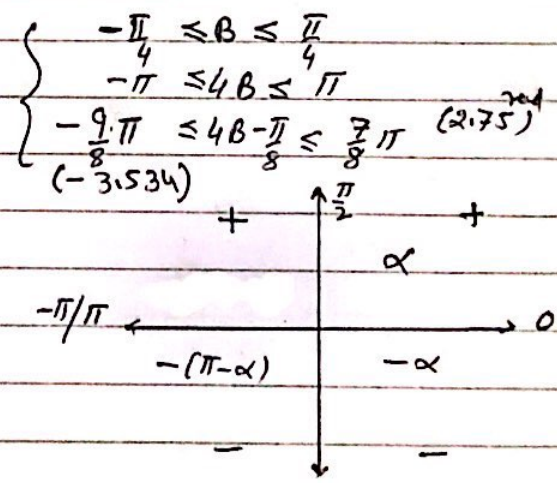 -π/4 ≤ B ≤ π/4
-π ≤ 4B ≤ π
-9/8 π ≤ 4B - π/8 ≤ 7/8 π (2.75) rad
(-3.534)
π/2
+ +
α
-π/π 0
-(π-α) -α
- -